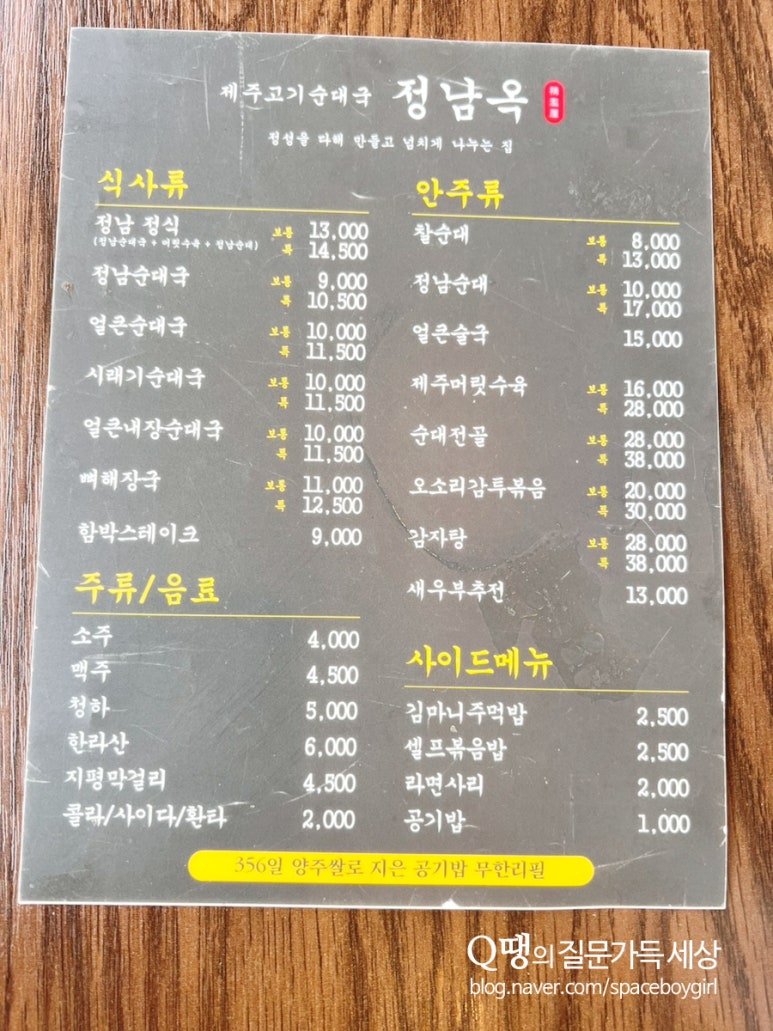 제주고기순대국 정남옥
정성을 다해 만들고 넘치게 나누는 집
식사류
정남 정식 보통 13,000
(정남순대국 + 머릿수육 + 정남순대) 특 14,500
정남순대국 보통 9,000
특 10,500
얼큰순대국 보통 10,000
특 11,500
시래기순대국 보통 10,000
특 11,500
얼큰내장순대국 보통 10,000
특 11,500
뼈해장국 보통 11,000
특 12,500
함박스테이크 9,000
주류/음료
소주 4,000
맥주 4,500
청하 5,000
한라산 6,000
지평막걸리 4,500
콜라/사이다/환타 2,000
안주류
찰순대 보통 8,000
특 13,000
정남순대 보통 10,000
특 17,000
얼큰술국 15,000
제주머릿수육 보통 16,000
특 28,000
순대전골 보통 28,000
특 38,000
오소리감투볶음 보통 20,000
특 30,000
감자탕 보통 28,000
특 38,000
새우부추전 13,000
사이드메뉴
김마니주먹밥 2,500
셀프볶음밥 2,500
라면사리 2,000
공기밥 1,000
356일 양주쌀로 지은 공기밥 무한리필
Q땡의 질문가득 세상
blog.naver.com/spaceboygirl